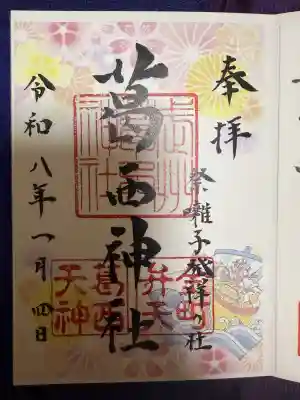 奉拝
祭囃子発祥の社
葛西神社
令和八年一月四日
金町
弁天
葛西
天神